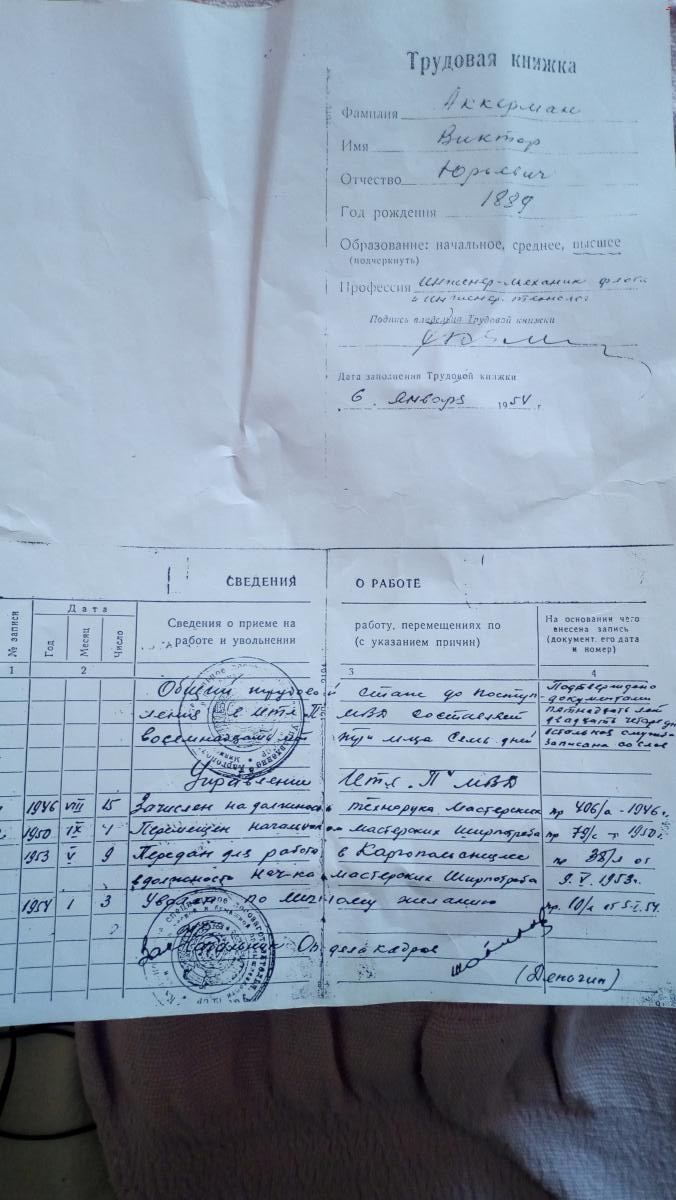 Трудовая книжка
Фамилия Аккерман
Имя Виктор
Отчество Юрьевич
Год рождения 1889
Образование: начальное, среднее, высшее
(подчеркнуть)
Профессия Инженер-механик флота
и инженер. технолог
Подпись владельца Трудовой книжки
Дата заполнения Трудовой книжки
6 января 1954 г.
СВЕДЕНИЯ О РАБОТЕ
№ записи
Дата
Год
Месяц
Число
Сведения о приеме на работу, перемещениях по
работе и увольнении (с указанием причин)
На основании чего
внесена запись
(документ, его дата
и номер)
1 2 3 4
Общий трудовой стаж до поступ-
ления в ИТЛ "П" МВД составляет
восемнадцать лет три м-ца семь дней
Подтверждено
документами
пятнадцать лет
записана со слов
Управление ИТЛ "П" МВД
1946 VIII 15 Зачислен на должность технорука Мастерских пр 406/а - 1946 г.
1950 IX 1 Перемещен начальником мастерских Ширпотреба пр 79/с 1950 г.
1953 V 9 Передан для работы в Каргопольлаг пр 38/л от
в должность нач-ка мастерских Ширпотреба 9. V. 1953 г.
1954 I 3 Уволен по личному желанию пр. 10/л от 5-I.54.
Зам начальник Отдела кадров
(Деногин)